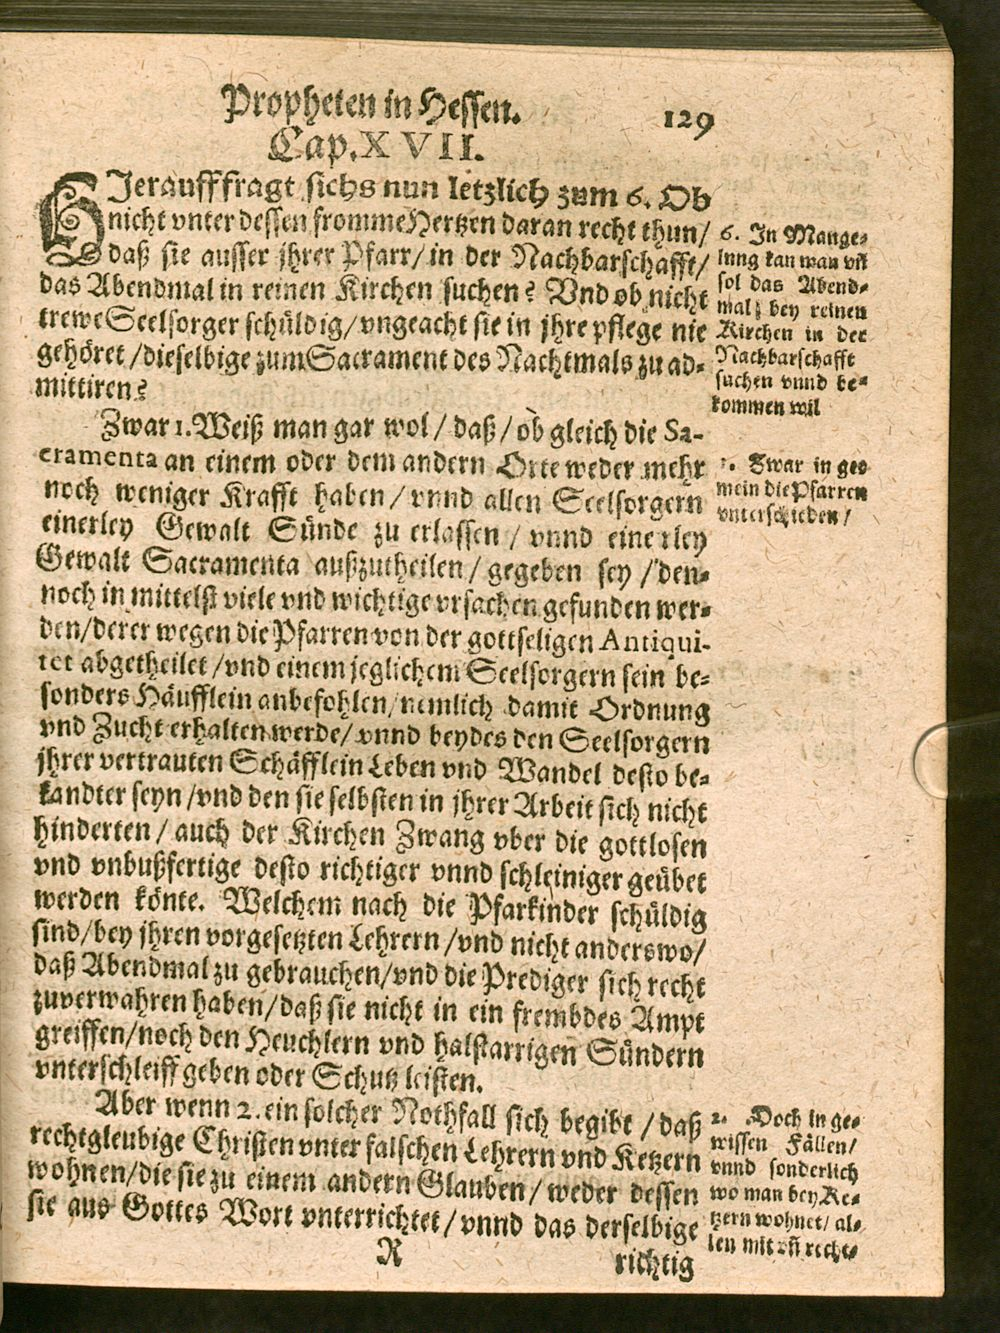 Propheten in Hessen. 129
Cap. XVII.
HIerauff fragt sichs nun letzlich zum 6. Ob
nicht vnter dessen fromme Hertzen daran recht thun/
daß sie ausser jhrer Pfarr/ in der Nachbarschafft/
das Abendmal in reinen Kirchen suchen? Vnd ob nicht
trewe Seelsorger schüldig/ vngeacht sie in jhre pflege nie
gehöret/ dieselbige zum Sacrament des Nachtmals zu ad-
mittiren?
6. In Mange-
lung kan man vñ
sol das Abend-
mal bey reinen
Kirchen in der
Nachbarschafft
suchen vnnd be-
kommen wil
Zwar 1. Weiß man gar wol/ daß/ ob gleich die Sa-
cramenta an einem oder dem andern Orte weder mehr
noch weniger Krafft haben/ vnnd allen Seelsorgern
einerley Gewalt Sünde zu erlassen/ vnnd einerley
Gewalt Sacramenta außzutheilen/ gegeben sey/ den-
noch in mittelst viele vnd wichtige vrsachen gefunden wer-
den/ derer wegen die Pfarren von der gottseligen Antiqui-
tet abgetheilet/ vnd einem jeglichem Seelsorgern sein be-
sonders Häufflein anbefohlen/ nemlich damit Ordnung
vnd Zucht erhalten werde/ vnnd beydes den Seelsorgern
jhrer vertrauten Schäfflein Leben vnd Wandel desto be-
kandter seyn/ vnd den sie selbsten in jhrer Arbeit sich nicht
hinderten/ auch der Kirchen Zwang vber die gottlosen
vnd vnbußfertige desto richtiger vnnd schleiniger geübet
werden könte. Welchem nach die Pfarkinder schüldig
sind/ bey jhren vorgesetzten Lehrern/ vnd nicht anderswo/
daß Abendmal zu gebrauchen/ vnd die Prediger sich recht
zuverwahren haben/ daß sie nicht in ein frembdes Ampt
greiffen/ noch den Heuchlern vnd halstarrigen Sündern
vnterschleiff geben oder Schutz leisten.
1. Zwar in ge-
mein die Pfarren
vnterschieden/
Aber wenn 2. ein solcher Nothfall sich begibt/ daß
rechtgleubige Christen vnter falschen Lehrern vnd Ketzern
wohnen/ die sie zu einem andern Glauben/ weder dessen
sie aus Gottes Wort vnterrichtet/ vnnd das derselbige
2. Doch in ge-
wissen Fällen/
vnnd sonderlich
wo man bey Ke-
tzern wohnet/ al-
len mit recht-
R richtig